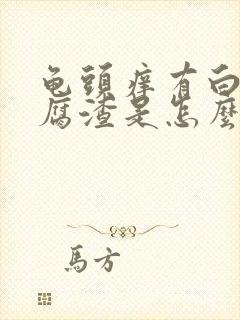 龟頭痒有白
腐渣是怎麼
馬方